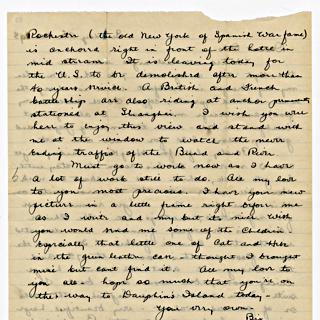 Rochester (the old New York of Spanish War fame)
is anchored right in front of the hotel in
mid stream. It is leaving today for
the U.S. to be demolished after more than
40 years service. A British and French
battleship are also riding at anchor permanently
stationed at Shanghai. I wish you were
here to enjoy this view and stand with
me at the window to watch the never
ending traffic of the Bund and River.
Must go to work now as I have
a lot of work still to do. All my love
to you most precious. I have your new
picture in a little frame right before me
as I write and my but its nice. Wish
you would send me some of the Children
Especially that little one of Cat and
in the green leather case. thought I brought
mine but cant find it. All my love to
you all. hope so much that you're on
the way to Dauphin's Island today.
Your very own